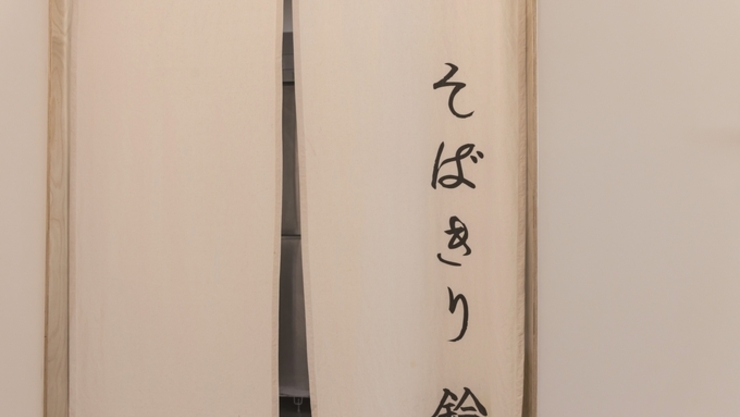 そばきり 鈴